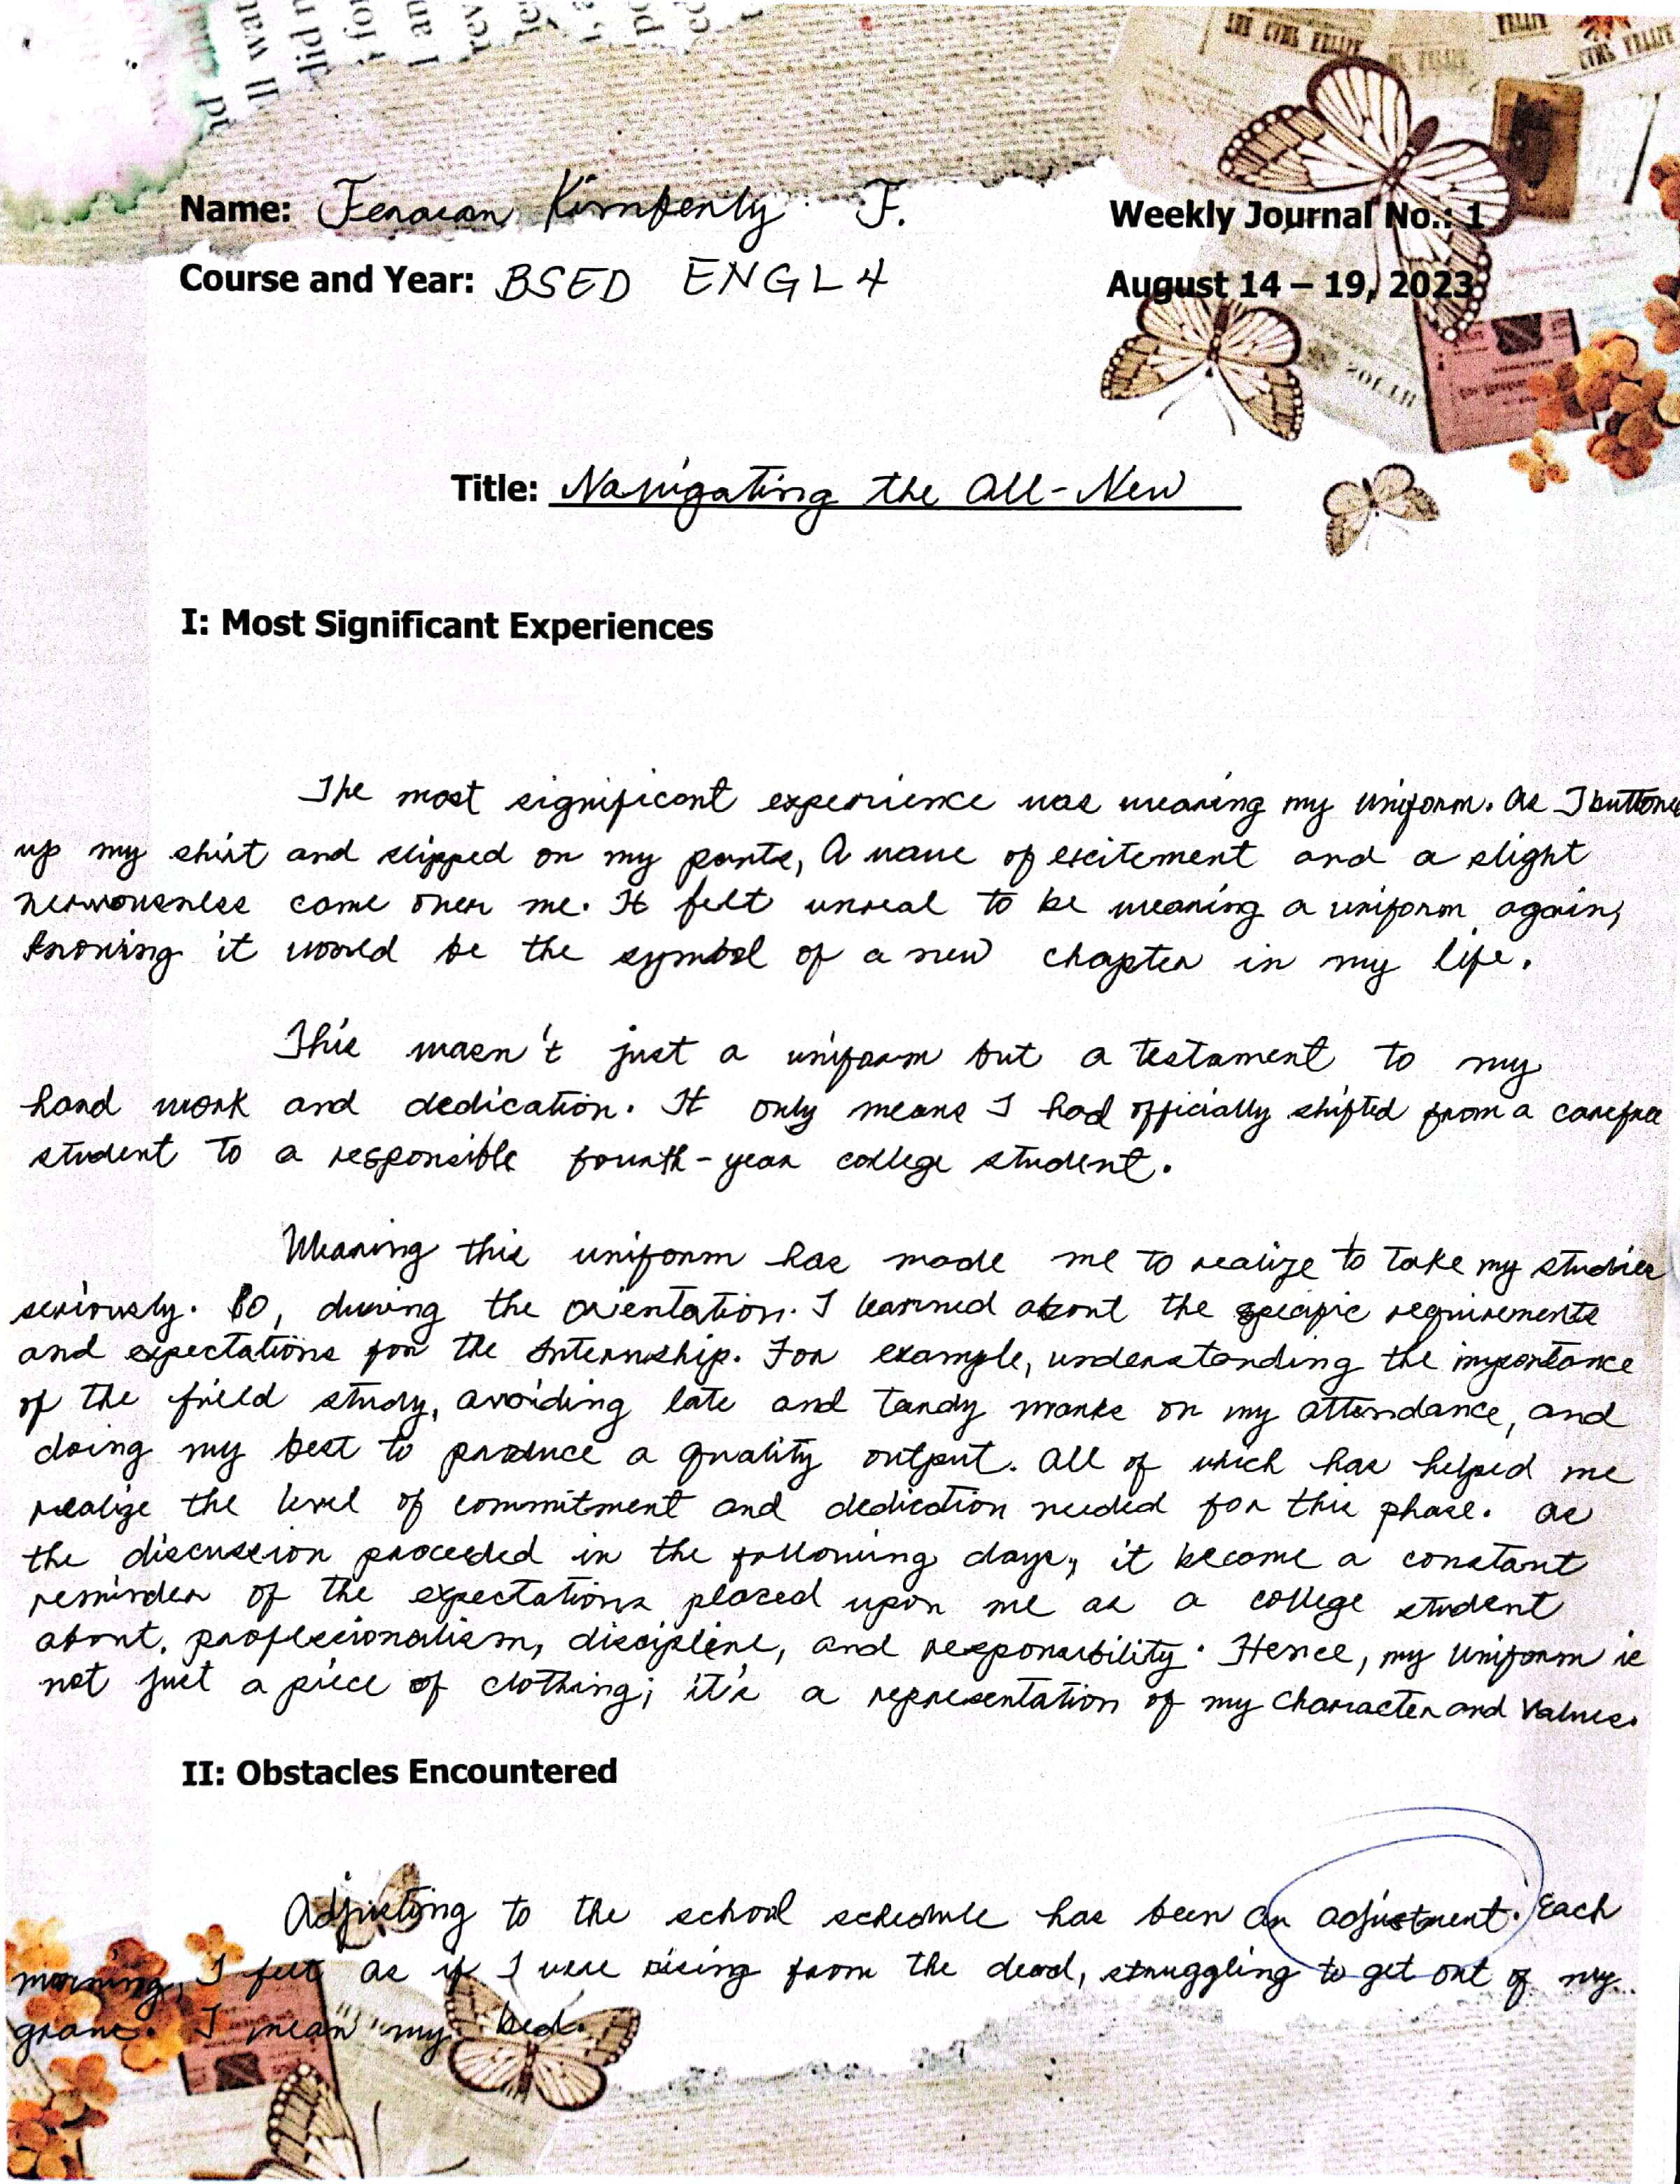 Name: Kimberly F.
Weekly Journal No.: 1
Course and Year: BSED ENGL 4
August 14 – 19, 2023
Title: Navigating the All-New
I: Most Significant Experiences
The most significant experience was wearing my uniform. As I buttone
up my shirt and slipped on my pants, A wave of excitement and a slight
nervousness came over me. It felt unreal to be wearing a uniform again,
knowing it would be the symbol of a new chapter in my life.
This wasn't just a uniform but a testament to my
hard work and dedication. It only means I had officially shifted from a carefree
student to a responsible fourth-year college student.
Wearing this uniform has made me to realize to take my studies
seriously. So, during the orientation. I learned about the specific requirements
and expectations for the Internship. For example, understanding the importance
of the field study, avoiding late and tardy marks on my attendance, and
doing my best to produce a quality output. All of which has helped me
realize the level of commitment and dedication needed for this phase. As
the discussion proceeded in the following days, it became a constant
reminder of the expectations placed upon me as a college student
about, professionalism, discipline, and responsibility. Hence, my uniform is
not just a piece of clothing; it's a representation of my character and values.
II: Obstacles Encountered
Adjusting to the school schedule has been an adjustment. Each
morning, I felt as if I were rising from the dead, struggling to get out of my..
grave. I mean "my bed.